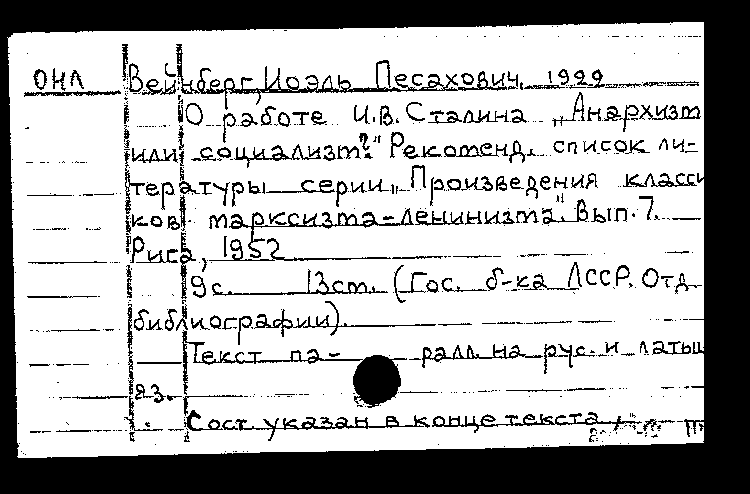 ОНЛ Вейнберг, Иоэль Песахович, 1929
О работе И.В. Сталина „Анархизм
или социализм?" Рекоменд. список ли-
тературы серии „Произведения класси
ков марксизма-ленинизма". Вып. 7.
Рига, 1952
9с. 13см. (Гос. б-ка ЛССР. Отд
библиографии).
Текст па- ралл. на рус. и латыш
яз.
Сост. указан в конце текста